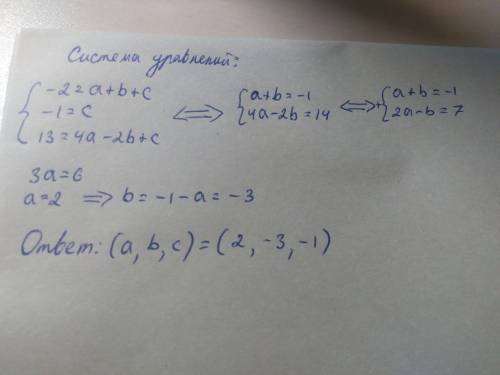 Система уравнений:
{ -2 = a+b+c
-1 = c
13 = 4a-2b+c ⟺ { a+b = -1
4a-2b = 14 ⟺ { a+b = -1
2a-b = 7
3a = 6
a = 2 ⟹ b = -1-a = -3
Ответ: (a, b, c) = (2, -3, -1)